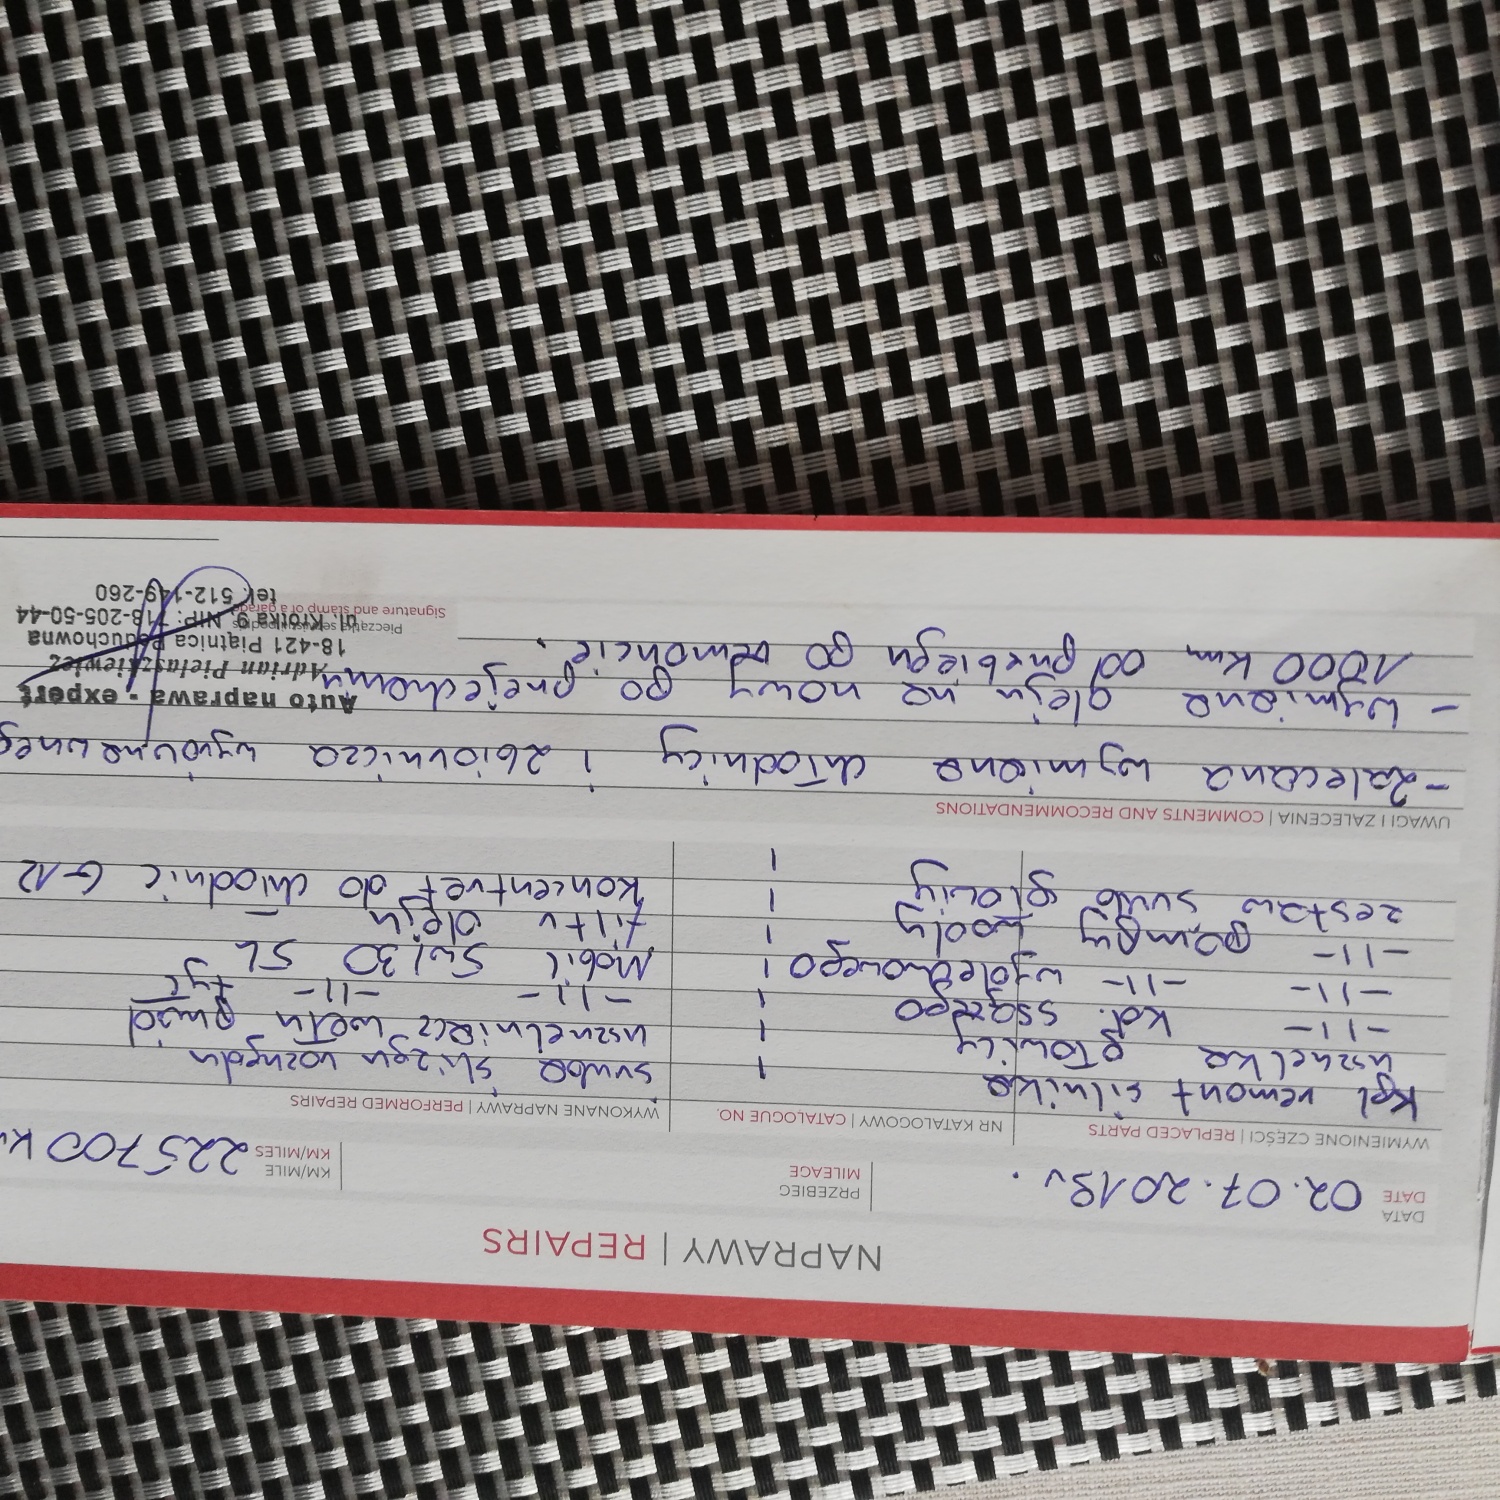 NAPRAWY | REPAIRS
DATA
DATE
02.07.2019r.
PRZEBIEG
MILEAGE
KM/MILE
KM/MILES
225700 K
WYMIENIONE CZĘŚCI | REPLACED PARTS
NR KATALOGOWY | CATALOGUE NO.
WYKONANE NAPRAWY | PERFORMED REPAIRS
Kpl remont silnika
uszczelka głowicy 1
-11- kol. ssącego 1
-11- -11- wydechowego 1
-11- pompy wody 1
zestaw śrub głowicy 1
1
śruba ślizgu rozrządu
uszczelniacz wału przód
-11- -11- tył
Mobil 5w30 5L
filtr oleju
koncentrat do chłodnic G12
UWAGI I ZALECENIA | COMMENTS AND RECOMMENDATIONS
- zalecana wymiana chłodnicy i zbiornicza wyrównawneg
- wymiana oleju na nowy po przejechaniu
1000 km od przebiegu po remoncie.
Auto naprawa - expert
Adrian Pietaszkiewicz
18-421 Piątnica Poduchowna
ul. Krótka 9, NIP: 718-205-50-44
tel. 512-149-260
Pieczątka serwisu i podpis
Signature and stamp of a garage